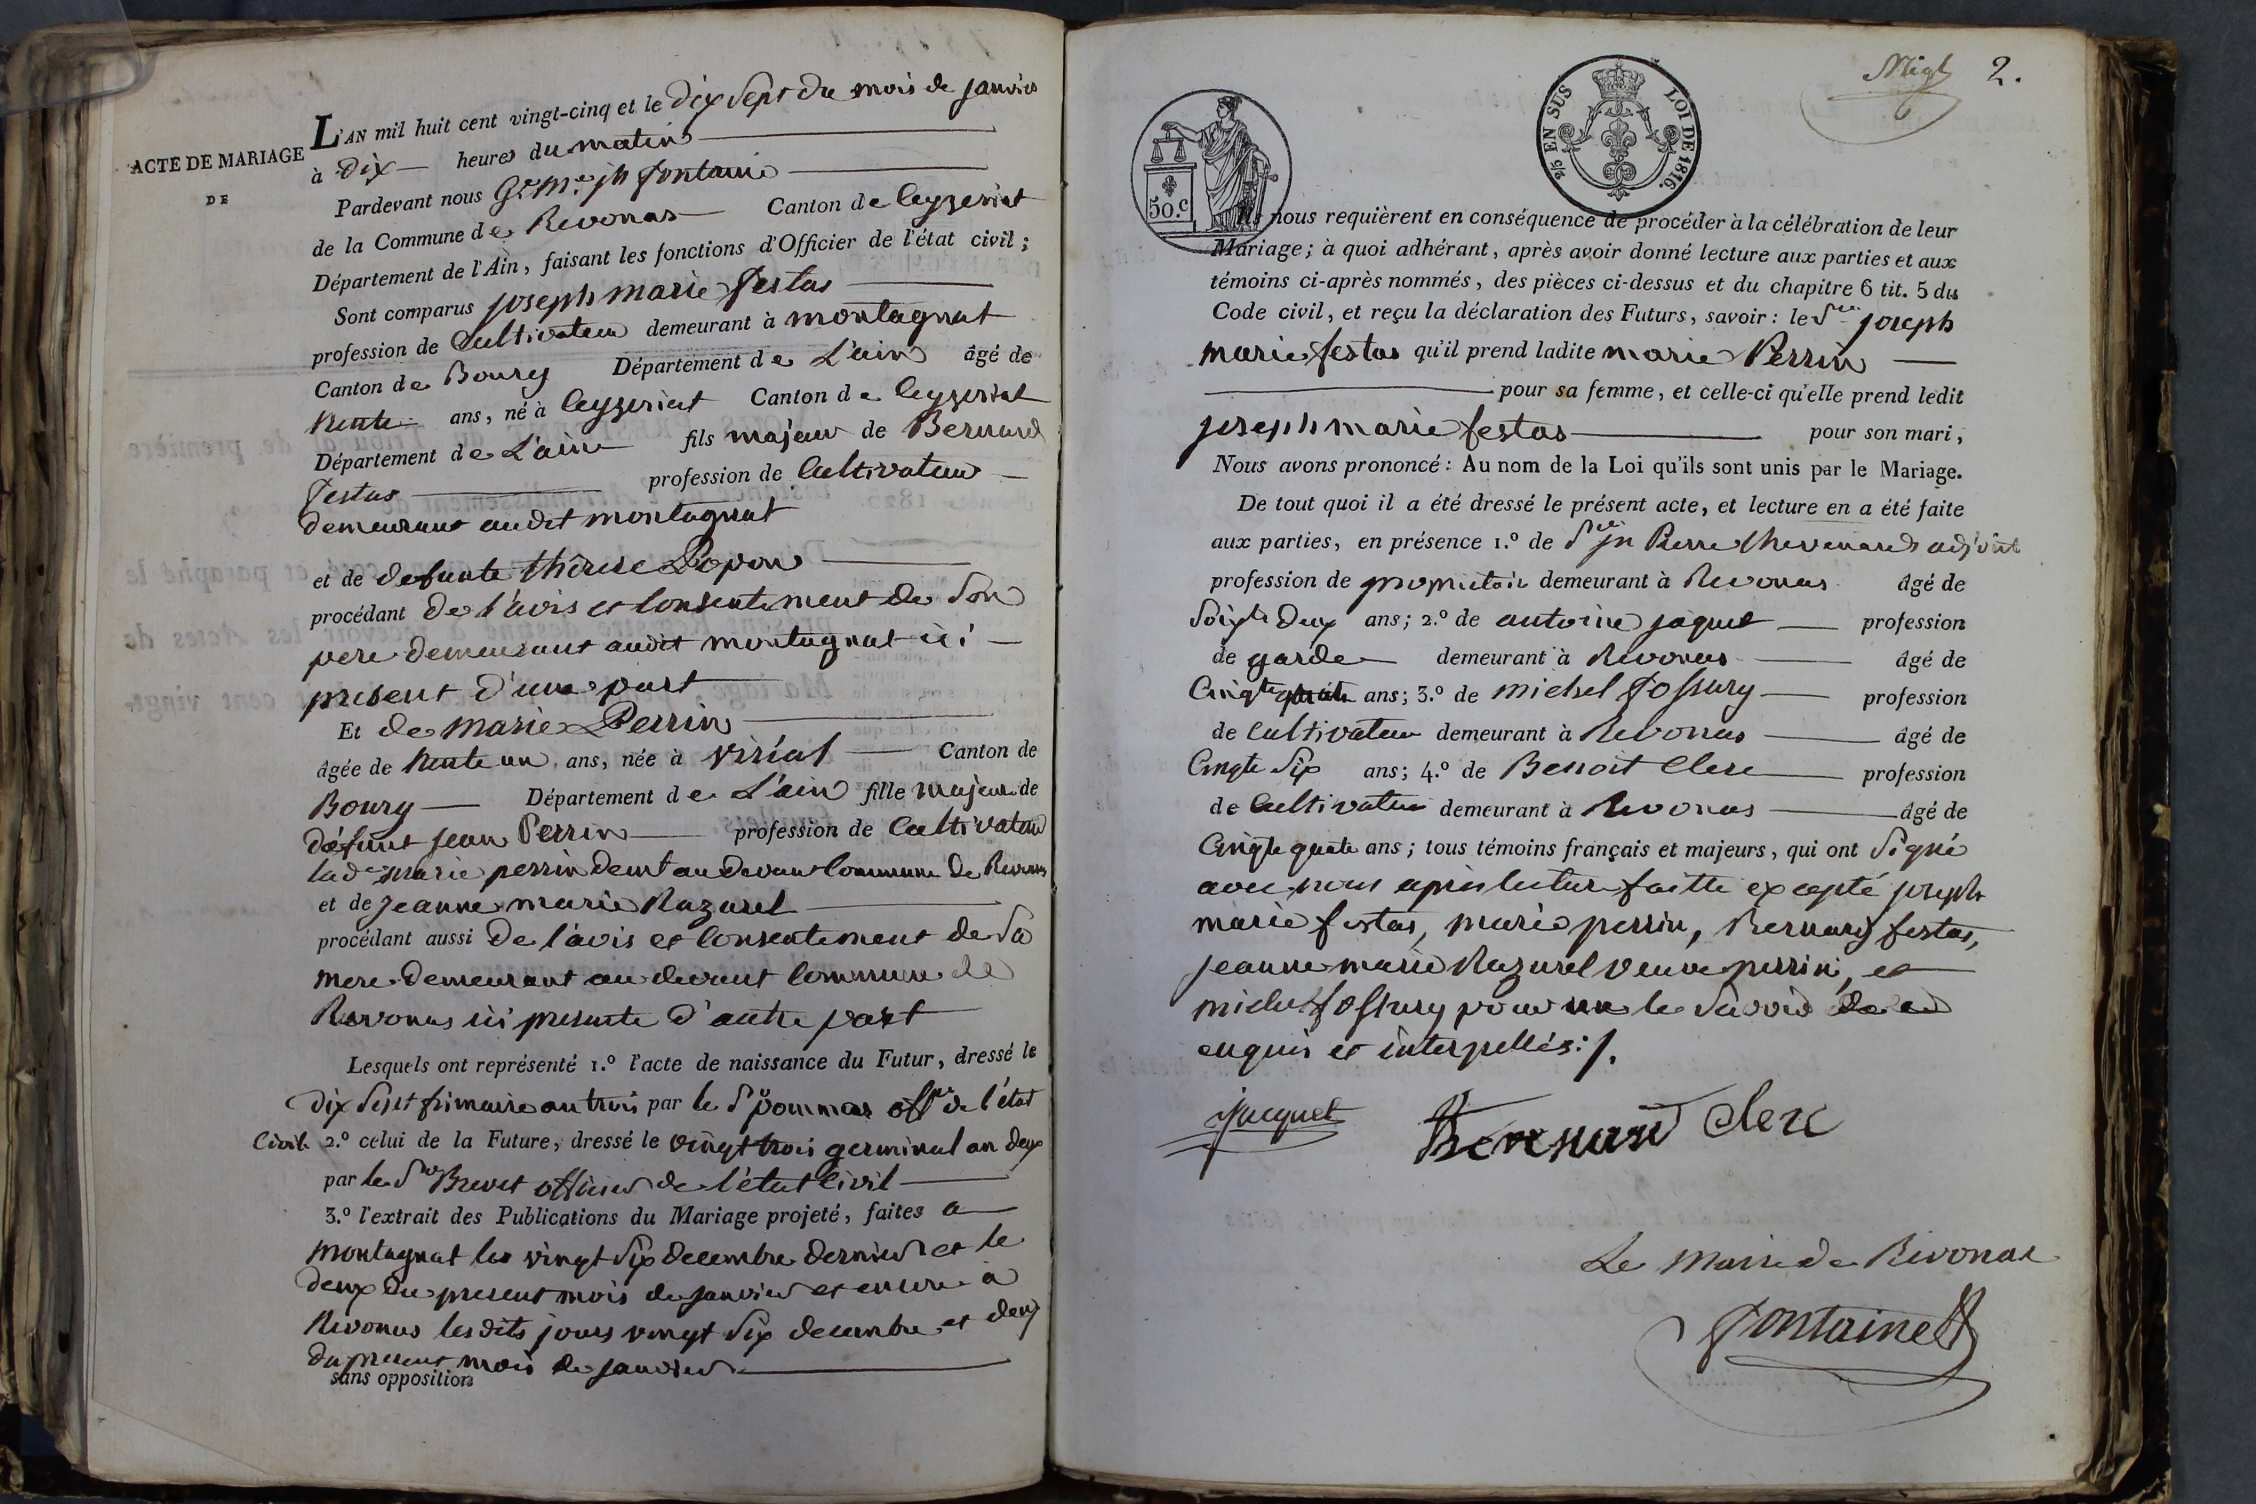 ACTE DE MARIAGE
DE
L'AN mil huit cent vingt-cinq et le dix sept du mois de janvier
à dix heures du matin
Pardevant nous Gd Me jh fontaine
de la Commune de Revonas Canton de Ceyzeriat
Département de l'Ain, faisant les fonctions d'Officier de l'état civil;
Sont comparus joseph marie festas
profession de Cultivateur demeurant à montagnat
Canton de Bourg Département de L'ain âgé de
trente ans, né à Ceyzeriat Canton de Ceyzeriat
Département de L'ain fils majeur de Bernard
festas profession de Cultivateur
demeurant audit montagnat
et de defunte thérese Popon
procédant de l'avis et Consentement de Son
pere demeurant audit montagnat ici
present d'une part
Et de marie Perrin
âgée de trente un ans, née à viriat Canton de
Bourg Département de L'ain fille majeure de
défunt jean Perrin profession de Cultivateur
lade marie perrin demt au devant Commune de Revonas
et de jeanne marie Razurel
procédant aussi de l'avis et Consentement de Sa
mere demeurant au devant Commune de
Revonas ici presente d'autre part
Lesquels ont représenté 1.º l'acte de naissance du Futur, dressé le
dix Sept frimaire an trois par le Sr pommas offer de l'état
Civil 2.º celui de la Future, dressé le vingt trois germinal an deux
par le Sr Brevet officier de l'état Civil
3.º l'extrait des Publications du Mariage projeté, faites a
montagnat les vingt Six decembre dernier et le
deux du present mois de janvier et encore à
Revonas lesdits jours vingt Six decembre et deux
du present mois de janvier
sans opposition
2.
50.c
2/5 EN SUS LOI DE 1816.
Ils nous requièrent en conséquence de procéder à la célébration de leur
Mariage; à quoi adhérant, après avoir donné lecture aux parties et aux
témoins ci-après nommés, des pièces ci-dessus et du chapitre 6 tit. 5 du
Code civil, et reçu la déclaration des Futurs, savoir: le Sr joseph
marie festas qu'il prend ladite marie Perrin
pour sa femme, et celle-ci qu'elle prend ledit
joseph marie festas pour son mari,
Nous avons prononcé: Au nom de la Loi qu'ils sont unis par le Mariage.
De tout quoi il a été dressé le présent acte, et lecture en a été faite
aux parties, en présence 1.º de Sr jn Pierre thevenard adjoint
profession de proprietaire demeurant à Revonas âgé de
Soixte deux ans; 2.º de antoine jaquet profession
de garde demeurant à Revonas âgé de
Cinqte quatre ans; 3.º de michel fossury profession
de Cultivateur demeurant à Revonas âgé de
Cinqte Six ans; 4.º de Benoit Clerc profession
de Cultivateur demeurant à Revonas âgé de
Cinqte quatre ans; tous témoins français et majeurs, qui ont Signé
avec nous après lecture faitte excepté joseph
marie festas, marie perrin, Bernard festas,
jeanne marie Razurel veuve perrin, et
michel fossury pour ne le Savoir de ce
enquis et interpellés ./.
Jacquet Thevenard Clerc
Le Maire de Revonas
fontaine